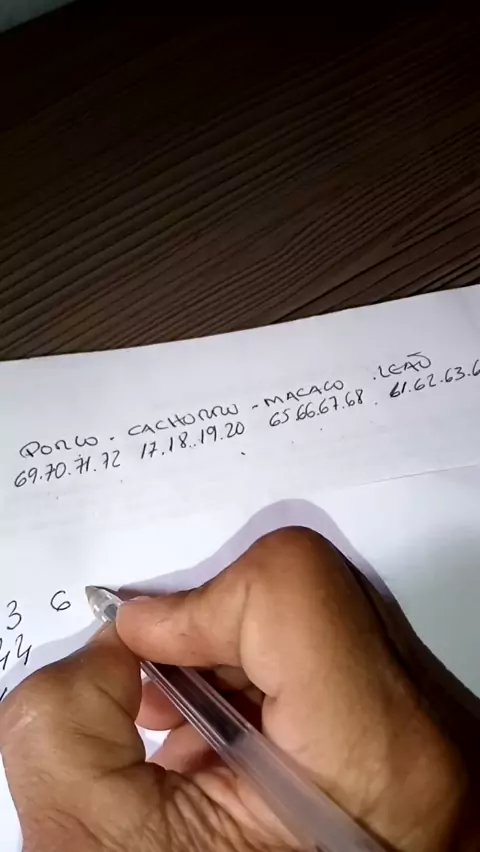 PORCO - CACHORRO - MACACO . LEÃO
69.70.71.72 17.18.19.20 65.66.67.68 . 61.62.63.6
3 6
44